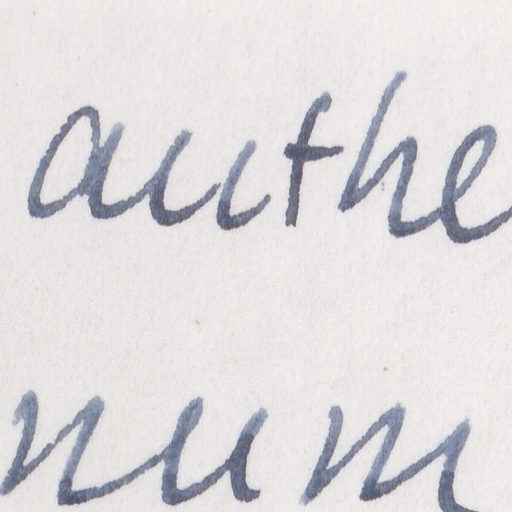 authe
num